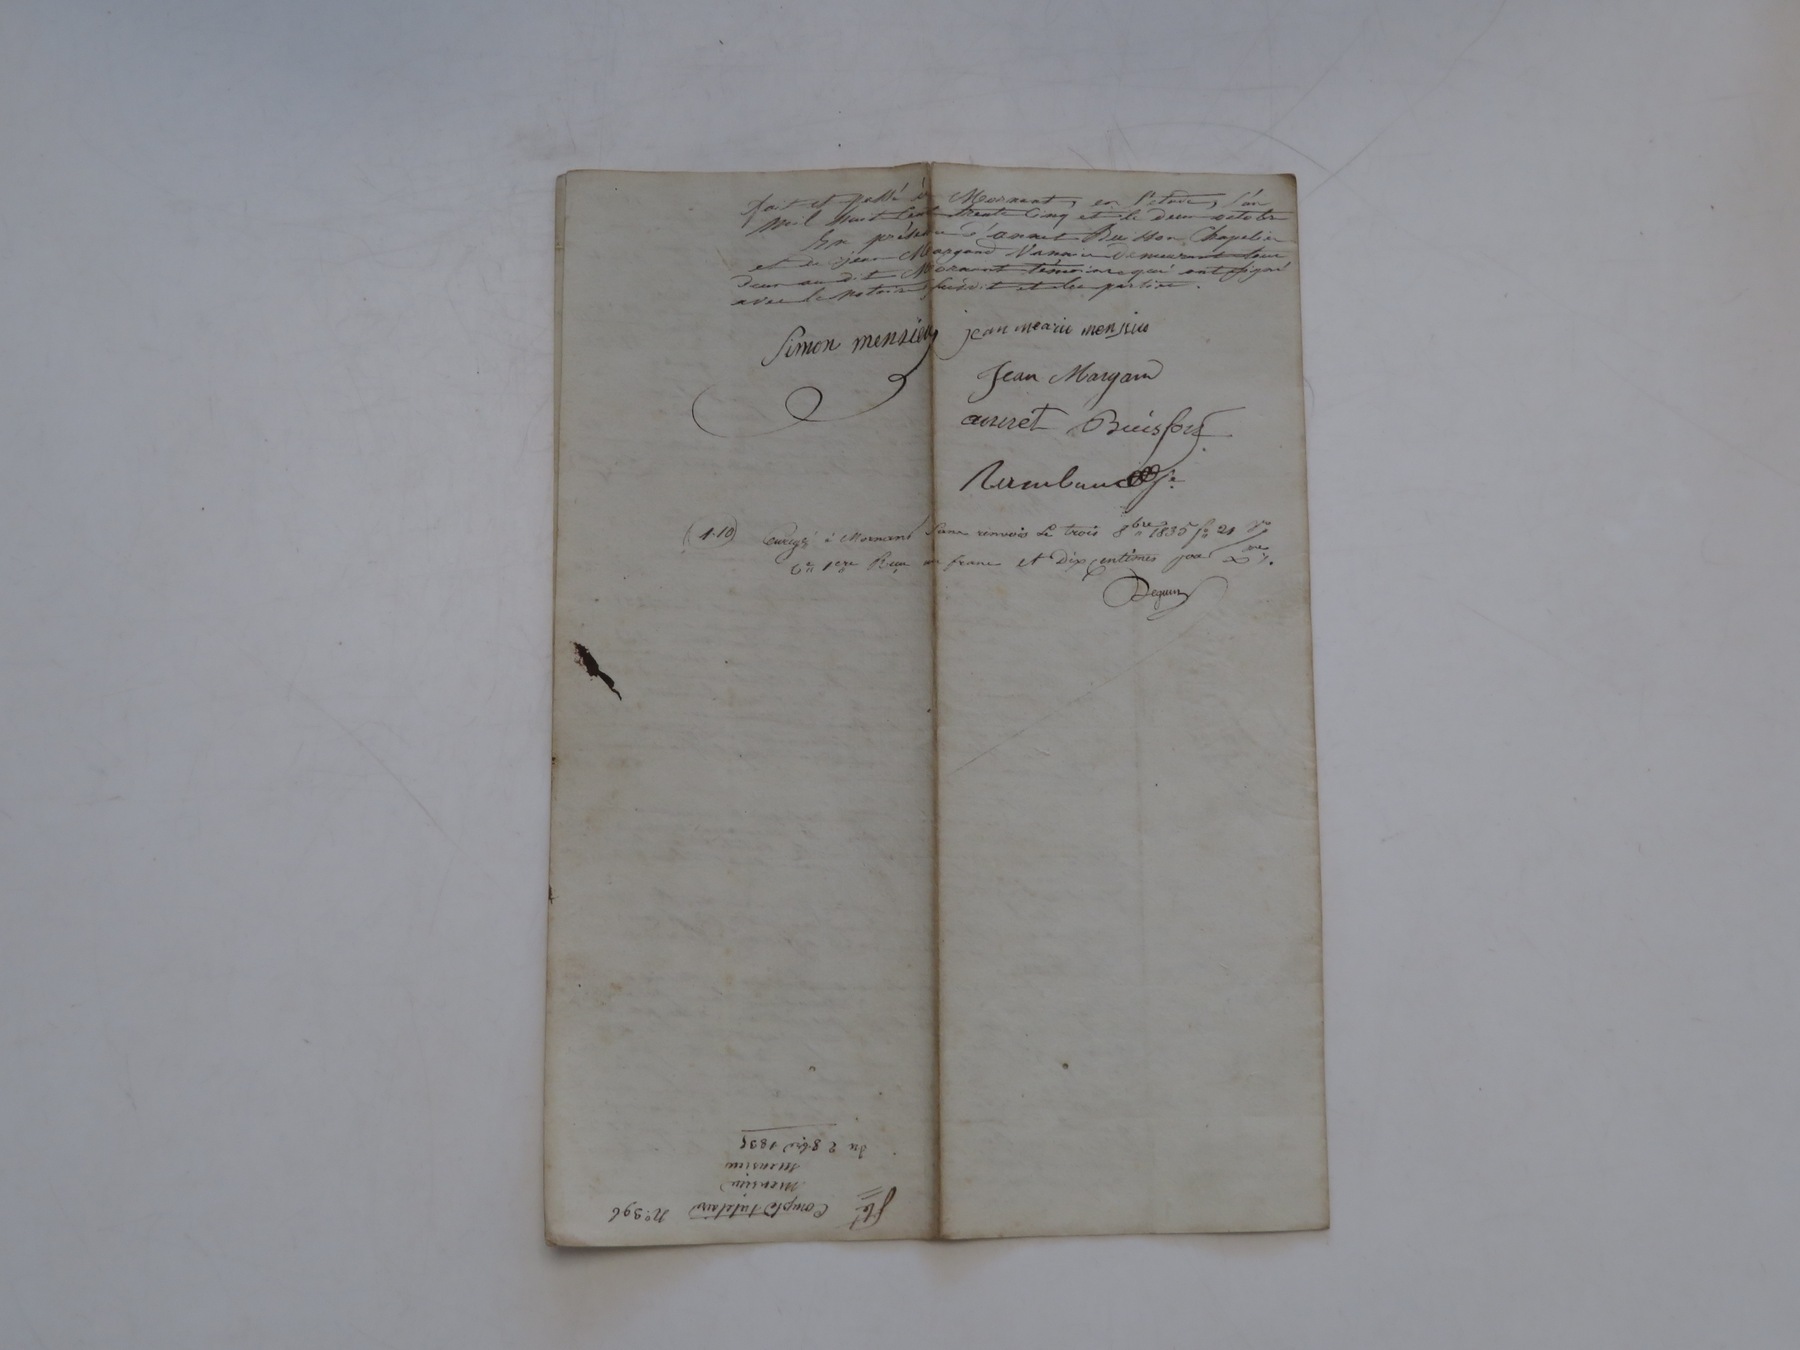 fait et passé à Mornant, en l'étude, l'an
mil huit cent trente cinq et le deux octobre
En présence d'annet Buisson Chapelier
et de jean Margand Vannier demeurant tous
deux au dit Mornant témoins qui ont signé
avec le notaire susdit et les parties.
Simon mensieu jean marie mensieu
Jean Margand
annet Buisson
Rambaud
(1-10) Enregé à Mornant sans renvois le trois 8bre 1835 fo 21 Vo
Cn 1ere Reçu un franc et Dix centimes pour
Dequin
No 396 Compte tutelaire
Mensieu
Mensieu
du 2 8bre 1835